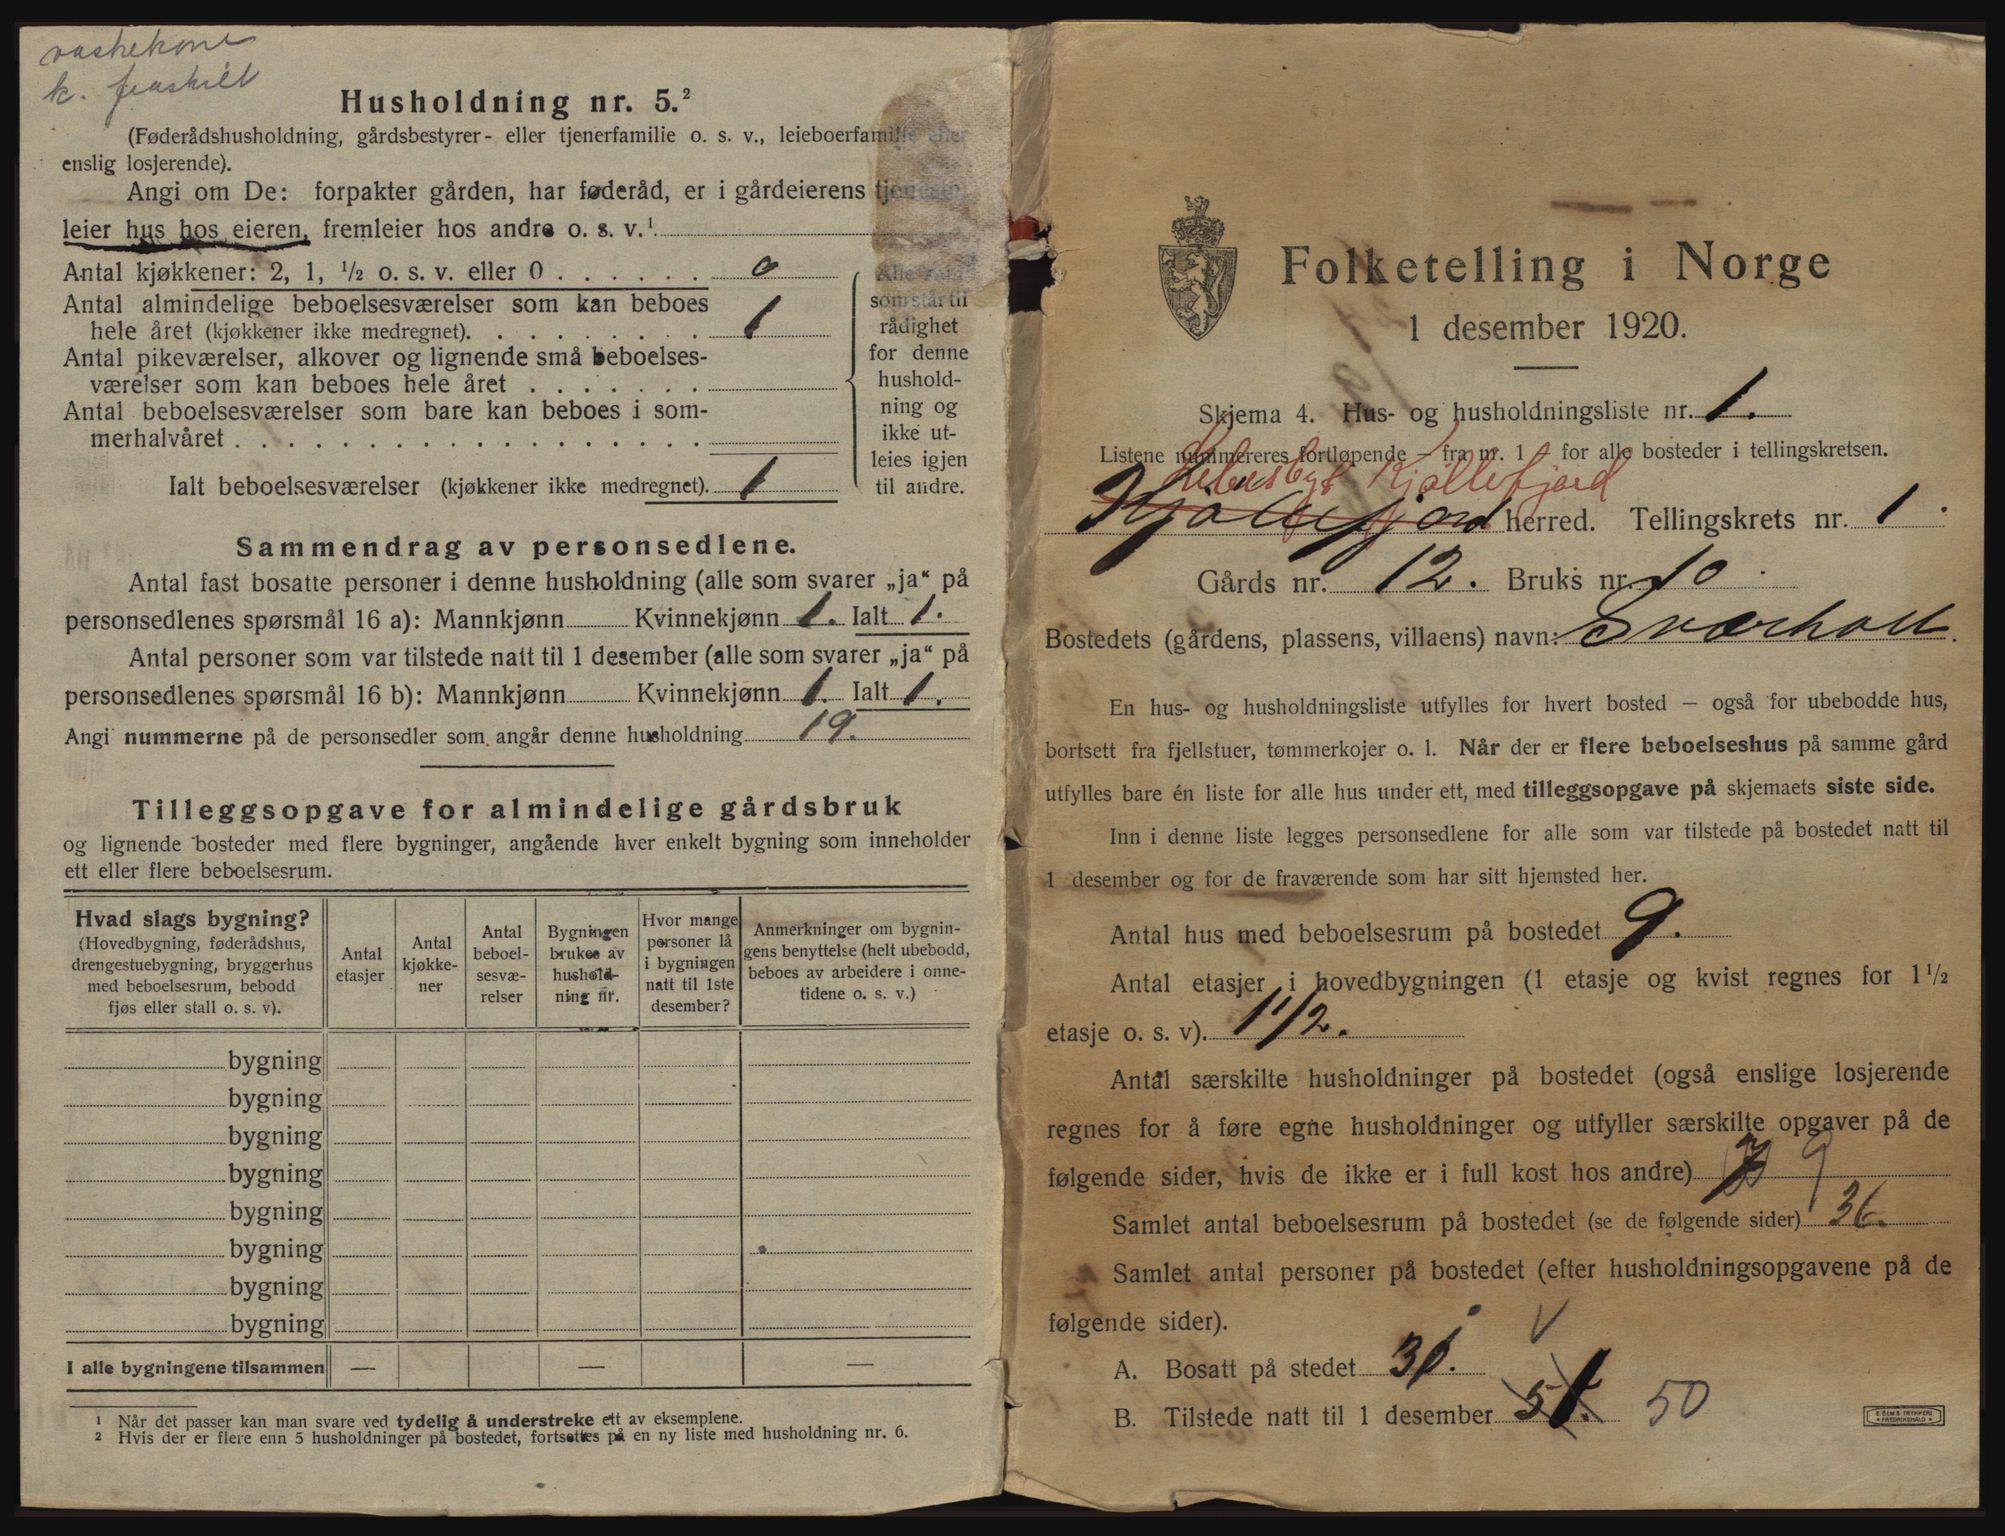 vaskekone
k. fraskilt
Husholdning nr. 5.²
(Føderådshusholdning, gårdsbestyrer- eller tjenerfamilie o. s. v., leieboerfamilie eller
enslig losjerende).
Angi om De: forpakter gården, har føderåd, er i gårdeierens tjeneste,
leier hus hos eieren, fremleier hos andre o. s. v.¹
Antal kjøkkener: 2, 1, ½ o. s. v. eller 0 . . . . . . 0
Antal almindelige beboelsesværelser som kan beboes
hele året (kjøkkener ikke medregnet). . . . . . . . . 1
Antal pikeværelser, alkover og lignende små beboelses-
værelser som kan beboes hele året . . . . . . .
Antal beboelsesværelser som bare kan beboes i som-
merhalvåret . . . . . . . . . . . . . . . . . .
Ialt beboelsesværelser (kjøkkener ikke medregnet). 1
Alle rum
som står til
rådighet
for denne
hushold-
ning og
ikke ut-
leies igjen
til andre.
Sammendrag av personsedlene.
Antal fast bosatte personer i denne husholdning (alle som svarer „ja“ på
personsedlenes spørsmål 16 a): Mannkjønn Kvinnekjønn 1. Ialt 1.
Antal personer som var tilstede natt til 1 desember (alle som svarer „ja“ på
personsedlenes spørsmål 16 b): Mannkjønn Kvinnekjønn 1. Ialt 1.
Angi nummerne på de personsedler som angår denne husholdning 19.
Tilleggsopgave for almindelige gårdsbruk
og lignende bosteder med flere bygninger, angående hver enkelt bygning som inneholder
ett eller flere beboelsesrum.
Hvad slags bygning?
(Hovedbygning, føderådshus,
drengestuebygning, bryggerhus
med beboelsesrum, bebodd
fjøs eller stall o. s. v).
Antal
etasjer
Antal
kjøkke-
ner
Antal
beboel-
sesvæ-
relser
Bygningen
brukes av
hushold-
ning nr.
Hvor mange
personer lå
i bygningen
natt til 1ste
desember?
Anmerkninger om bygnin-
gens benyttelse (helt ubebodd,
beboes av arbeidere i onne-
tidene o. s. v.)
bygning
bygning
bygning
bygning
bygning
bygning
bygning
bygning
I alle bygningene tilsammen — — —
¹ Når det passer kan man svare ved tydelig å understreke ett av eksemplene.
² Hvis der er flere enn 5 husholdninger på bostedet, fortsettes på en ny liste med husholdning nr. 6.
Folketelling i Norge
1 desember 1920.
Skjema 4. Hus- og husholdningsliste nr. 1.
Listene nummereres fortløpende – fra nr. 1 – for alle bosteder i tellingskretsen.
Lebesby Kjøllefjord
Kjøllefjord herred. Tellingskrets nr. 1.
Gårds nr. 12. Bruks nr. 10.
Bostedets (gårdens, plassens, villaens) navn: Sværholt.
En hus- og husholdningsliste utfylles for hvert bosted – også for ubebodde hus,
bortsett fra fjellstuer, tømmerkojer o. l. Når der er flere beboelseshus på samme gård
utfylles bare én liste for alle hus under ett, med tilleggsopgave på skjemaets siste side.
Inn i denne liste legges personsedlene for alle som var tilstede på bostedet natt til
1 desember og for de fraværende som har sitt hjemsted her.
Antal hus med beboelsesrum på bostedet 9.
Antal etasjer i hovedbygningen (1 etasje og kvist regnes for 1½
etasje o. s. v). 1 1/2.
Antal særskilte husholdninger på bostedet (også enslige losjerende
regnes for å føre egne husholdninger og utfyller særskilte opgaver på de
følgende sider, hvis de ikke er i full kost hos andre) 9
Samlet antal beboelsesrum på bostedet (se de følgende sider) 36.
Samlet antal personer på bostedet (efter husholdningsopgavene på de
følgende sider).
A. Bosatt på stedet 31. V
B. Tilstede natt til 1 desember 51. 50